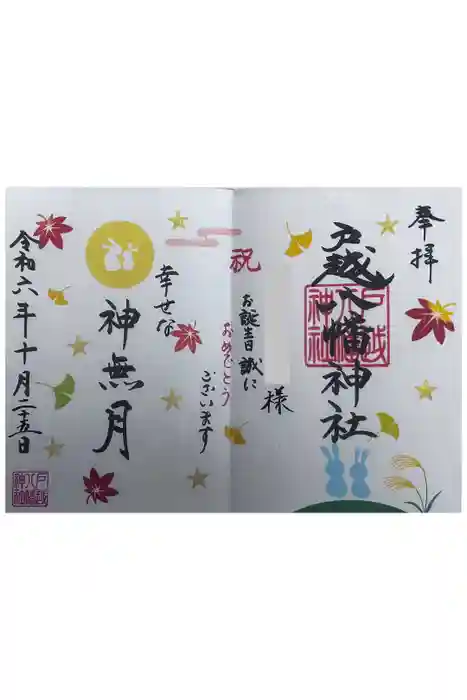 奉拝
戸越八幡神社
戸越八幡神社
様
祝
お誕生日誠に
おめでとう
ございます
幸せな
神無月
令和六年十月二十五日
戸越八幡神社